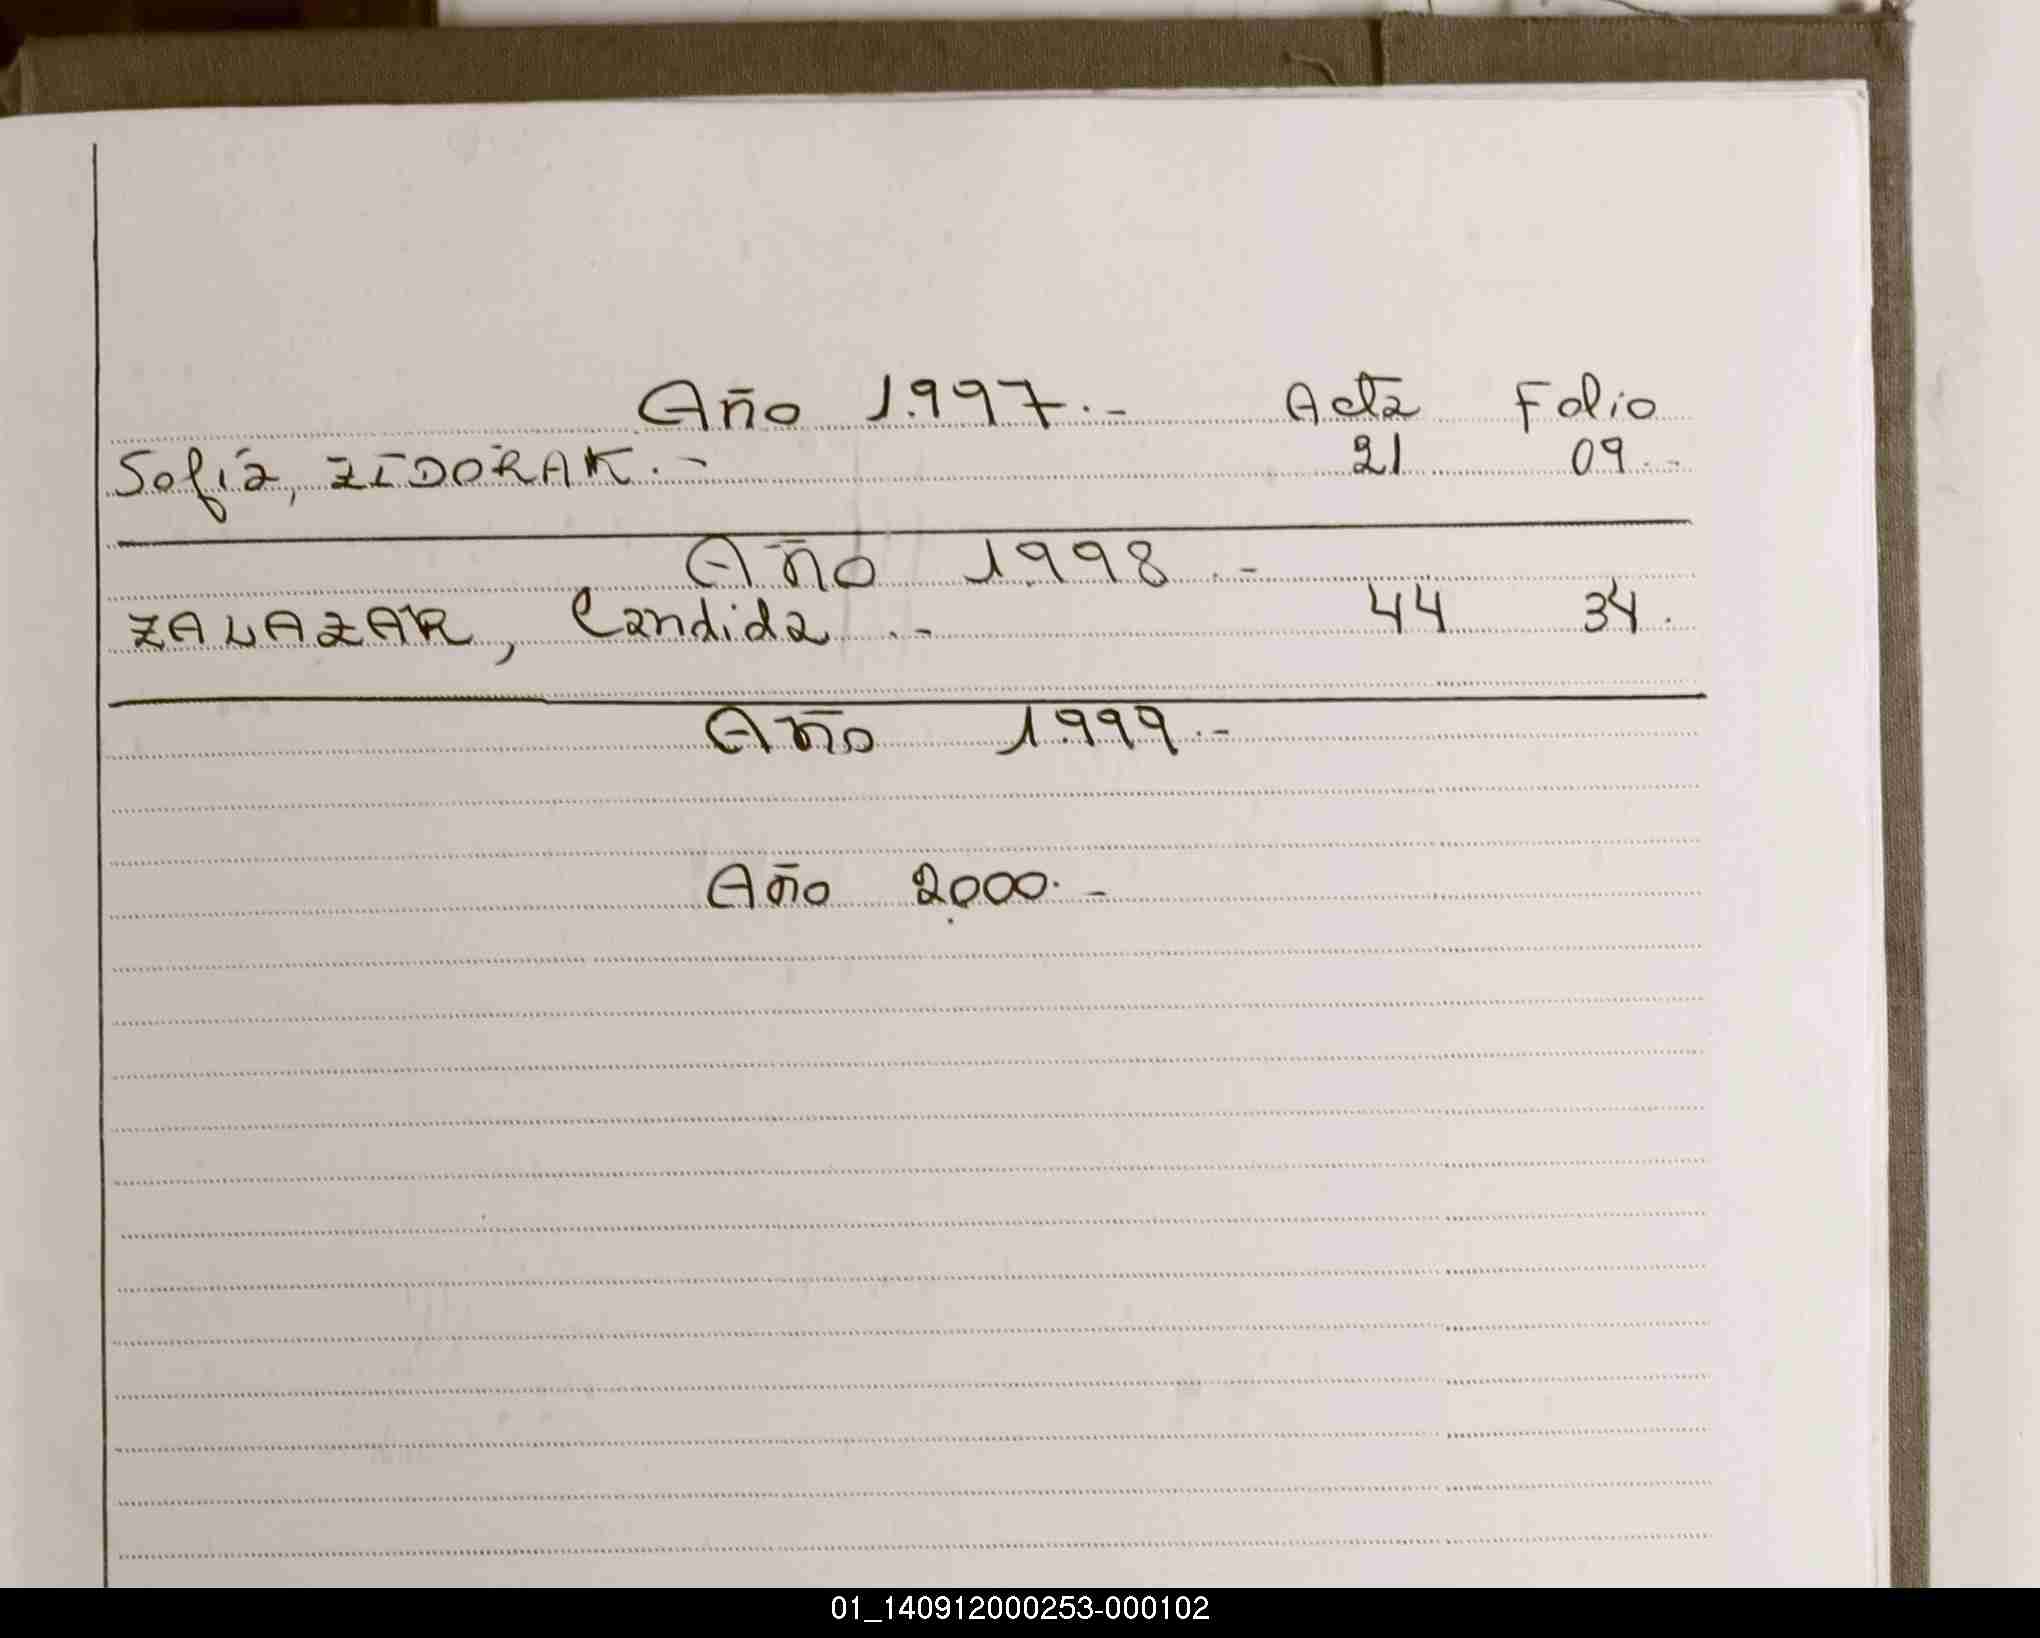 Año 1.997.- Acta Folio
Sofía, ZIDORAK.- 21 09.-
Año 1.998.-
ZALAZAR, Candida.- 44 34.
Año 1.999.-
Año 2.000.-
01_140912000253-000102